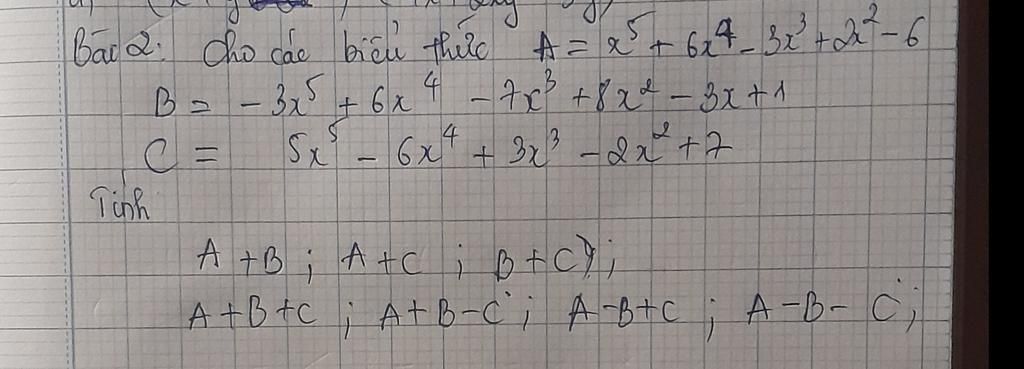 Bài 2: Cho các biểu thức A = x⁵ + 6x⁴ - 3x³ + 2x² - 6
B = - 3x⁵ + 6x⁴ - 7x³ + 8x² - 3x + 1
C = 5x⁵ - 6x⁴ + 3x³ - 2x² + 7
Tính
A + B ; A + C ; B + C ;
A + B + C ; A + B - C ; A - B + C ; A - B - C ;